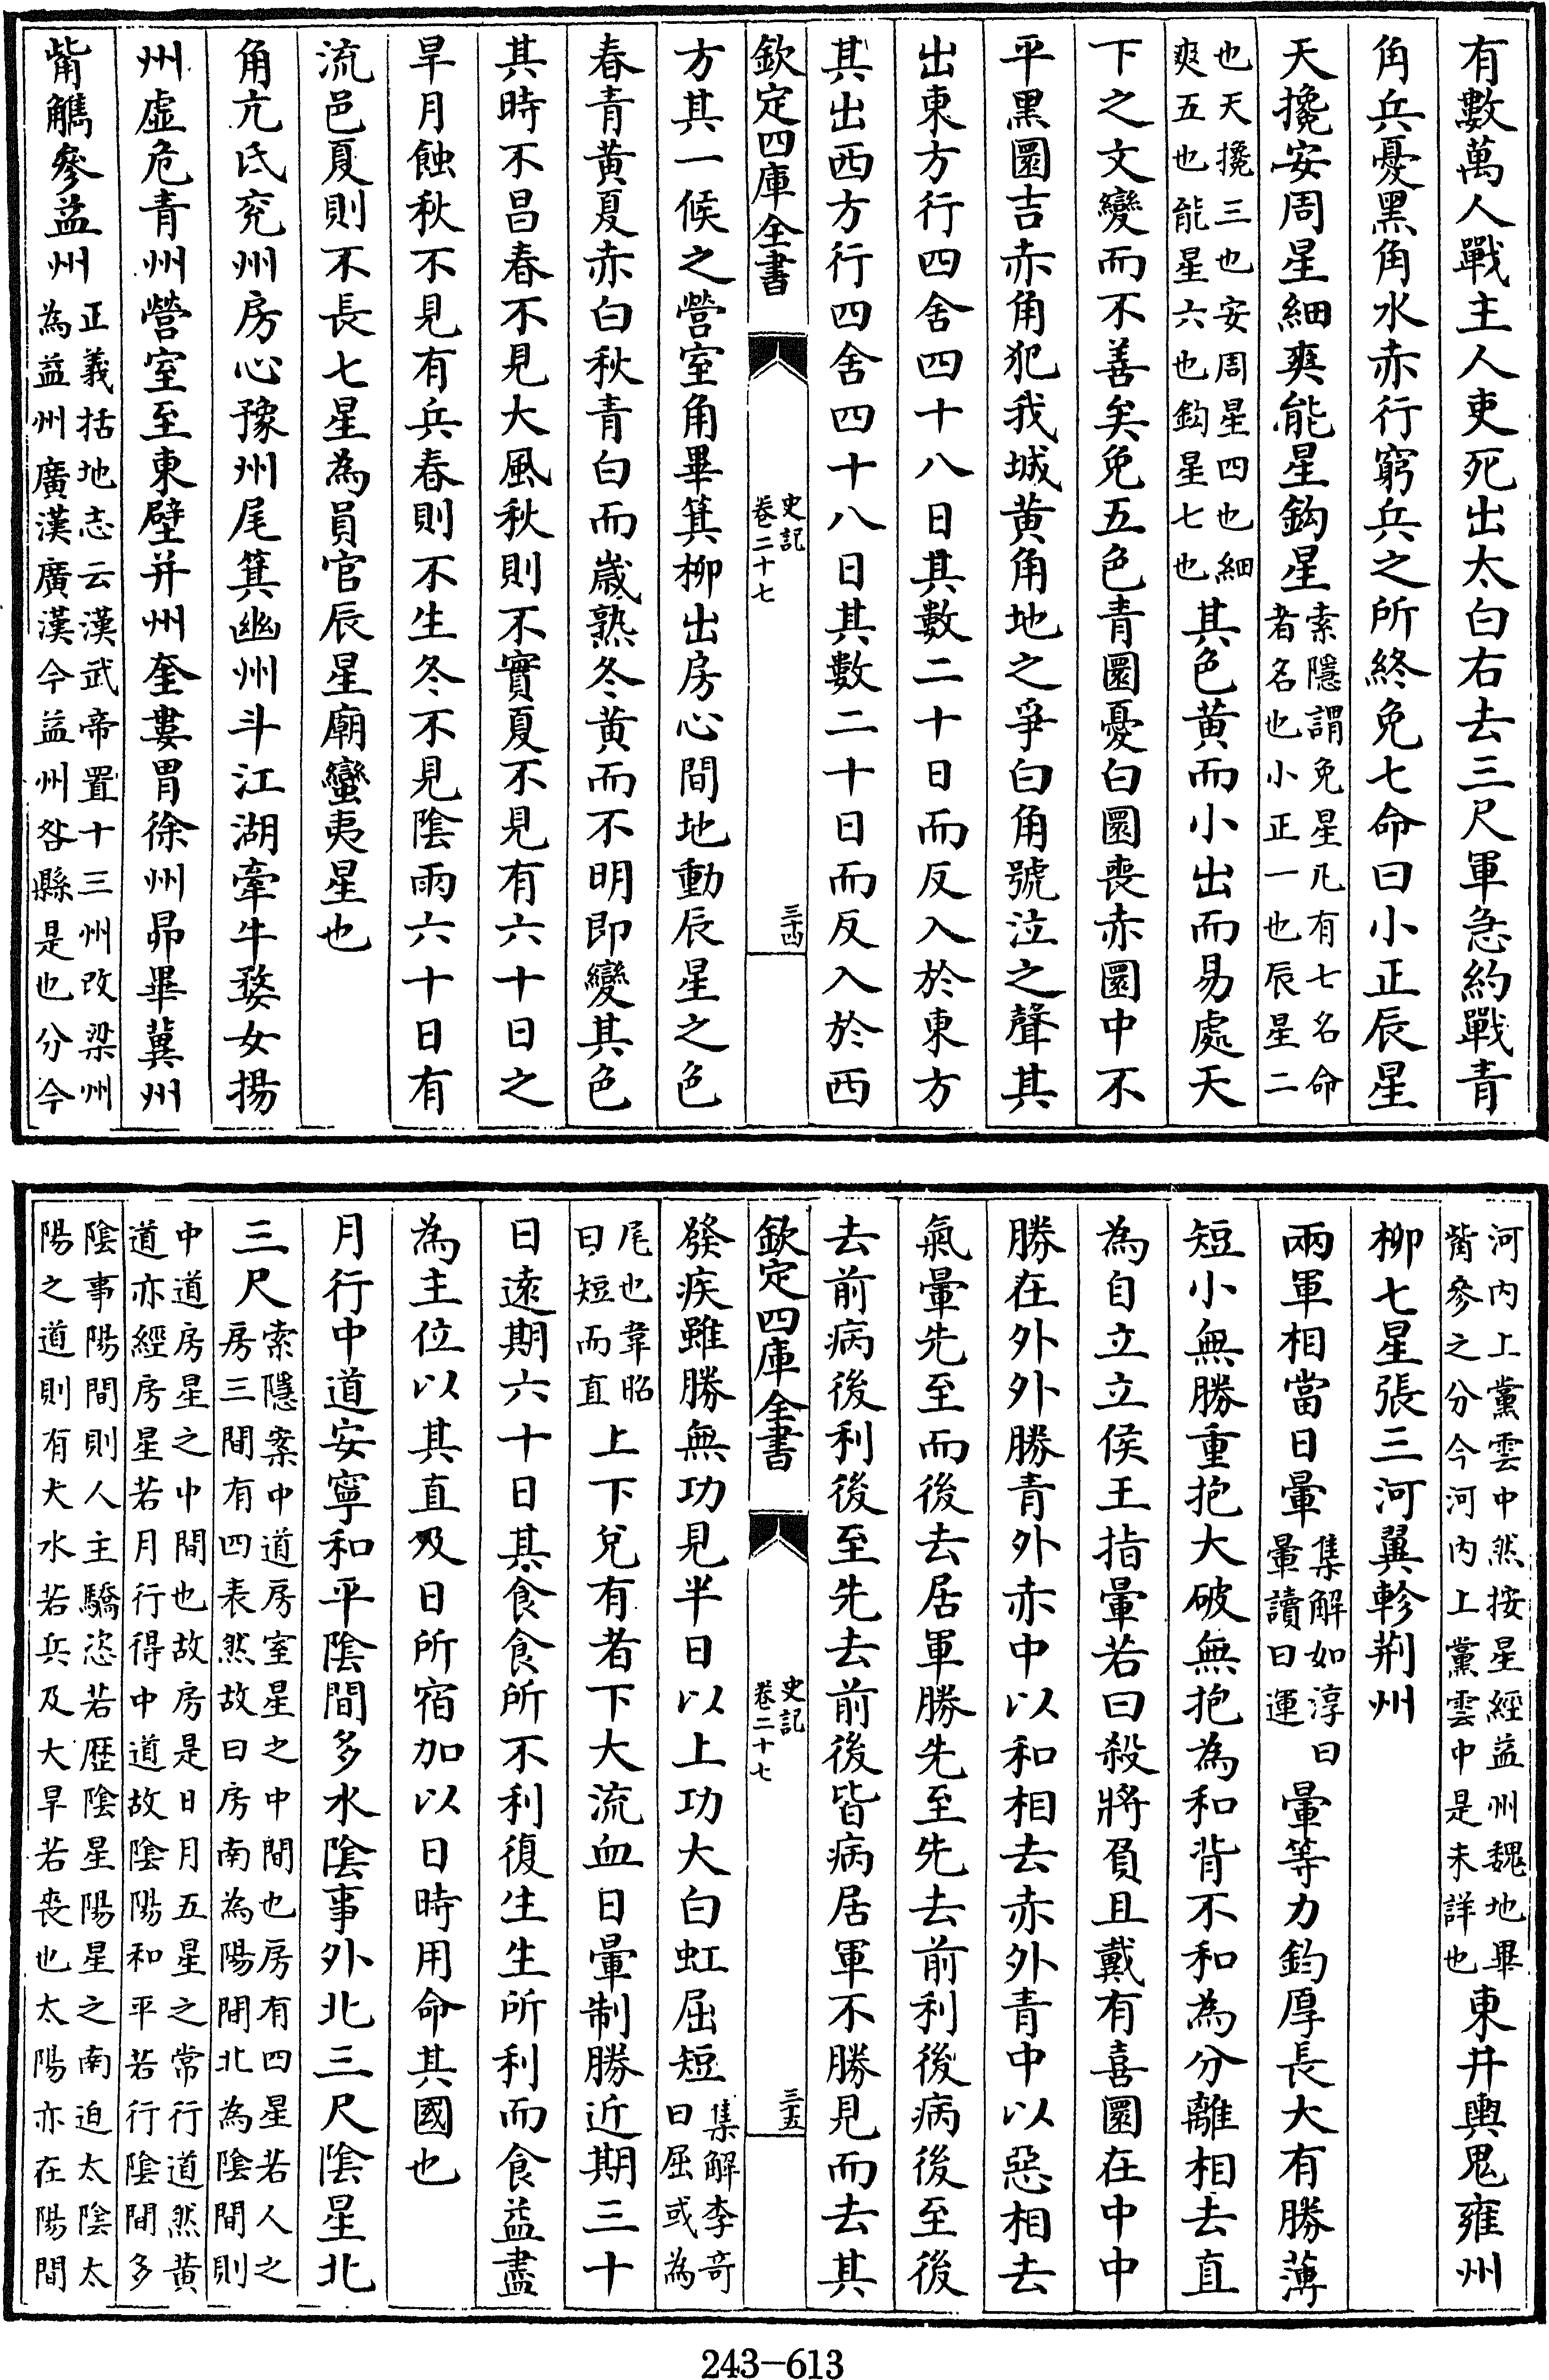 有數萬人戰主人吏死出太白右去三尺軍急約戰青
角兵憂黑角水赤行窮兵之所終免七命曰小正辰星
天攙安周星細爽能星鈎星索隱謂免星凡有七名命者名也小正一也辰星二
也天攙三也安周星四也細爽五也能星六也鈎星七也其色黄而小出而易處天
下之文變而不善矣免五色青圜憂白圜喪赤圜中不
平黑圜吉赤角犯我城黄角地之爭白角號泣之聲其
出東方行四舍四十八日其數二十日而反入於東方
其出西方行四舍四十八日其數二十日而反入於西
欽定四庫全書 史記卷二十七 三十四
方其一候之營室角畢箕柳出房心間地動辰星之色
春青黄夏赤白秋青白而嵗熟冬黄而不明即變其色
其時不昌春不見大風秋則不實夏不見有六十日之
旱月蝕秋不見有兵春則不生冬不見隂雨六十日有
流邑夏則不長七星為員官辰星廟蠻夷星也
角亢氐兖州房心豫州尾箕幽州斗江湖牽牛婺女揚
州虛危青州營室至東壁并州奎婁胃徐州昴畢冀州
觜觿參益州正義括地志云漢武帝置十三州改梁州為益州廣漢廣漢今益州咎縣是也分今
河内上黨雲中然按星經益州魏地畢觜參之分今河内上黨雲中是未詳也東井輿鬼雍州
柳七星張三河翼軫荆州
兩軍相當日暈集解如淳曰暈讀曰運暈等力鈞厚長大有勝薄
短小無勝重抱大破無抱為和背不和為分離相去直
為自立立侯王指暈若曰殺將負且戴有喜圜在中中
勝在外外勝青外赤中以和相去赤外青中以惡相去
氣暈先至而後去居軍勝先至先去前利後病後至後
去前病後利後至先去前後皆病居軍不勝見而去其
欽定四庫全書 史記卷二十七 三十五
發疾雖勝無功見半日以上功大白虹屈短集解李竒曰屈或為
尾也韋昭曰短而直上下兌有者下大流血日暈制勝近期三十
日遠期六十日其食食所不利復生生所利而食益盡
為主位以其直及日所宿加以日時用命其國也
月行中道安寧和平隂間多水隂事外北三尺隂星北
三尺索隱案中道房室星之中間也房有四星若人之房三間有四表然故曰房南為陽間北為隂間則
中道房星之中間也故房是日月五星之常行道然黄道亦經房星若月行得中道故隂陽和平若行隂間多
隂事陽間則人主驕恣若歴隂星陽星之南迫太隂太陽之道則有大水若兵及大旱若喪也太陽亦在陽間
243-613